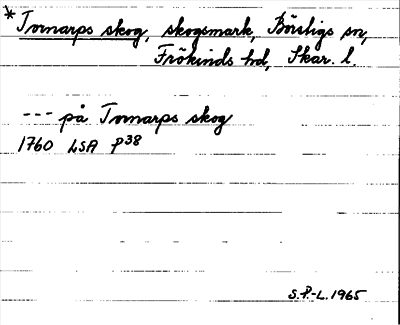 * Tovarps skog, skogsmark, Börstigs sn,
Frökinds hd, Skar. l.
--- på Tovarps skog
1760 LSA P38
S.P.-L. 1965